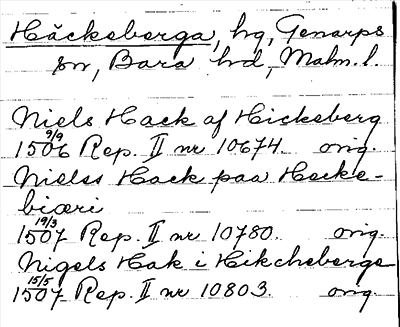 Häckeberga, hg, Genarps
sn, Bara hd, Malm. l.
Niels Hack af Hickeberg
1506 9/9 Rep. II nr 10674. orig.
Nielss Hack paa Hecke-
biœri
1507 19/3 Rep. II nr 10780. orig.
Nigels Hak i Hikcheberge
1507 15/5 Rep. II nr 10803. orig.